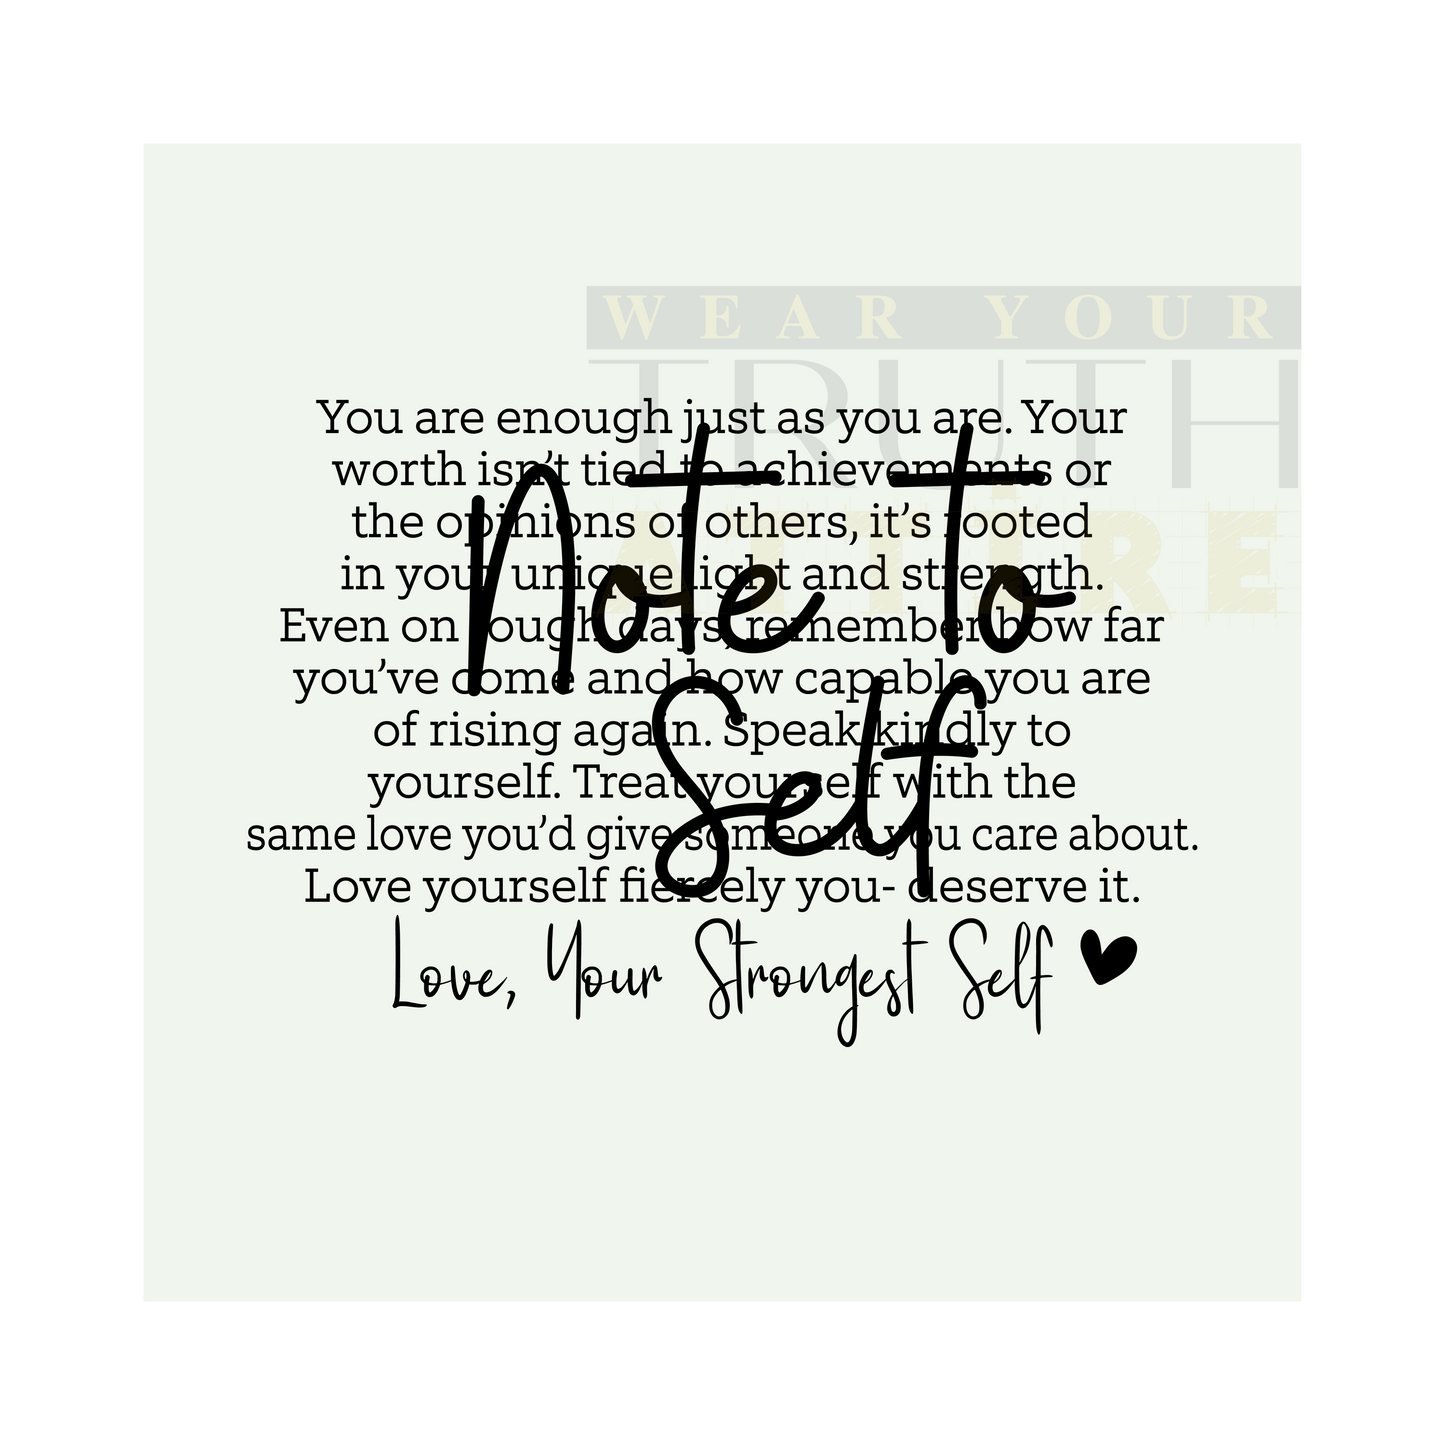 WEAR YOUR
TRUTH
ATTIRE
You are enough just as you are. Your
worth isn’t tied to achievements or
the opinions of others, it’s rooted
in your unique light and strength.
Even on rough days, remember how far
you’ve come and how capable you are
of rising again. Speak kindly to
yourself. Treat yourself with the
same love you’d give someone you care about.
Love yourself fiercely you- deserve it.
Note to
Self
Love, Your Strongest Self